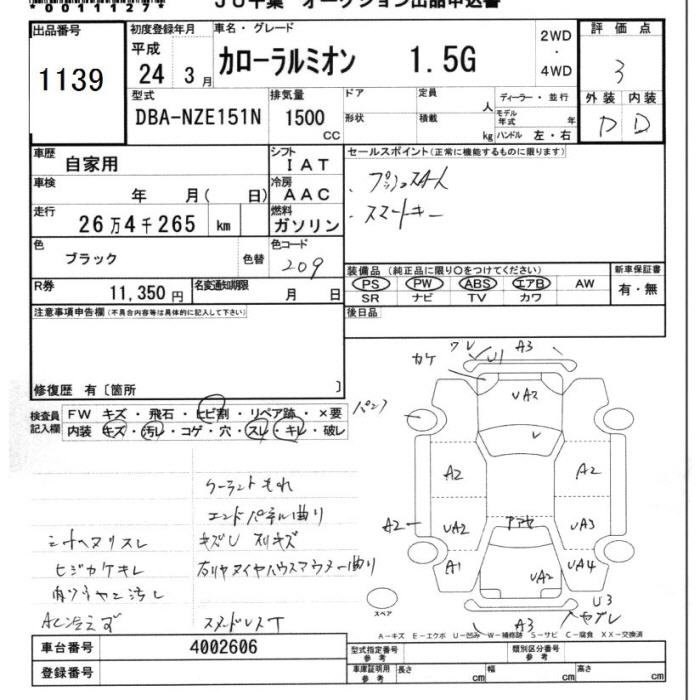 *0011127*
JU千葉 オークション出品申込書
出品番号
1139
初度登録年月
平成
24 3月
車名・グレード
カローラルミオン 1.5G
2WD
・
4WD
評価点
3
外装 内装
D D
型式
DBA-NZE151N
排気量
1500
CC
ドア
形状
定員
人
積載
kg
ディーラー・並行
モデル年式
年
ハンドル 左・右
車歴
自家用
シフト
IAT
車検
年 月( 日)
冷房
AAC
走行
26万4千265 km
燃料
ガソリン
色
ブラック
色替
色コード
209
R券
11,350円
名変通知期限
月 日
セールスポイント(正常に機能するものに限ります)
・プッシュスタート
・スマートキー
装備品(純正品に限り○をつけてください)
PS PW ABS エアB AW
SR ナビ TV カワ
新車保証書
有・無
後日品
注意事項申告欄(不具合内容等は具体的に記入して下さい)
修復歴 有〔箇所 〕
検査員
記入欄
FW キズ・飛石・ヒビ割・リペア跡・×要
内装 キズ・汚レ・コゲ・穴・スレ・キレ・破レ
クーラントもれ
エンドパネル曲り
シートヘタリスレ
キズU
ヒジカケキレ
AC冷えず
カケ
ワレ
U1
A3
パンク
UA2
A2
A2
A2
UA2
UA3
A1
UA4
UA2
U3
A3
スペア
A-キズ E-エクボ U-凹み W-補修跡 S-サビ C-腐食 XX-交換済
車台番号
4002606
登録番号
型式指定番号
参考
類別区分番号
参考
車庫証明用
参考
長さ
cm
幅
cm
高さ
cm